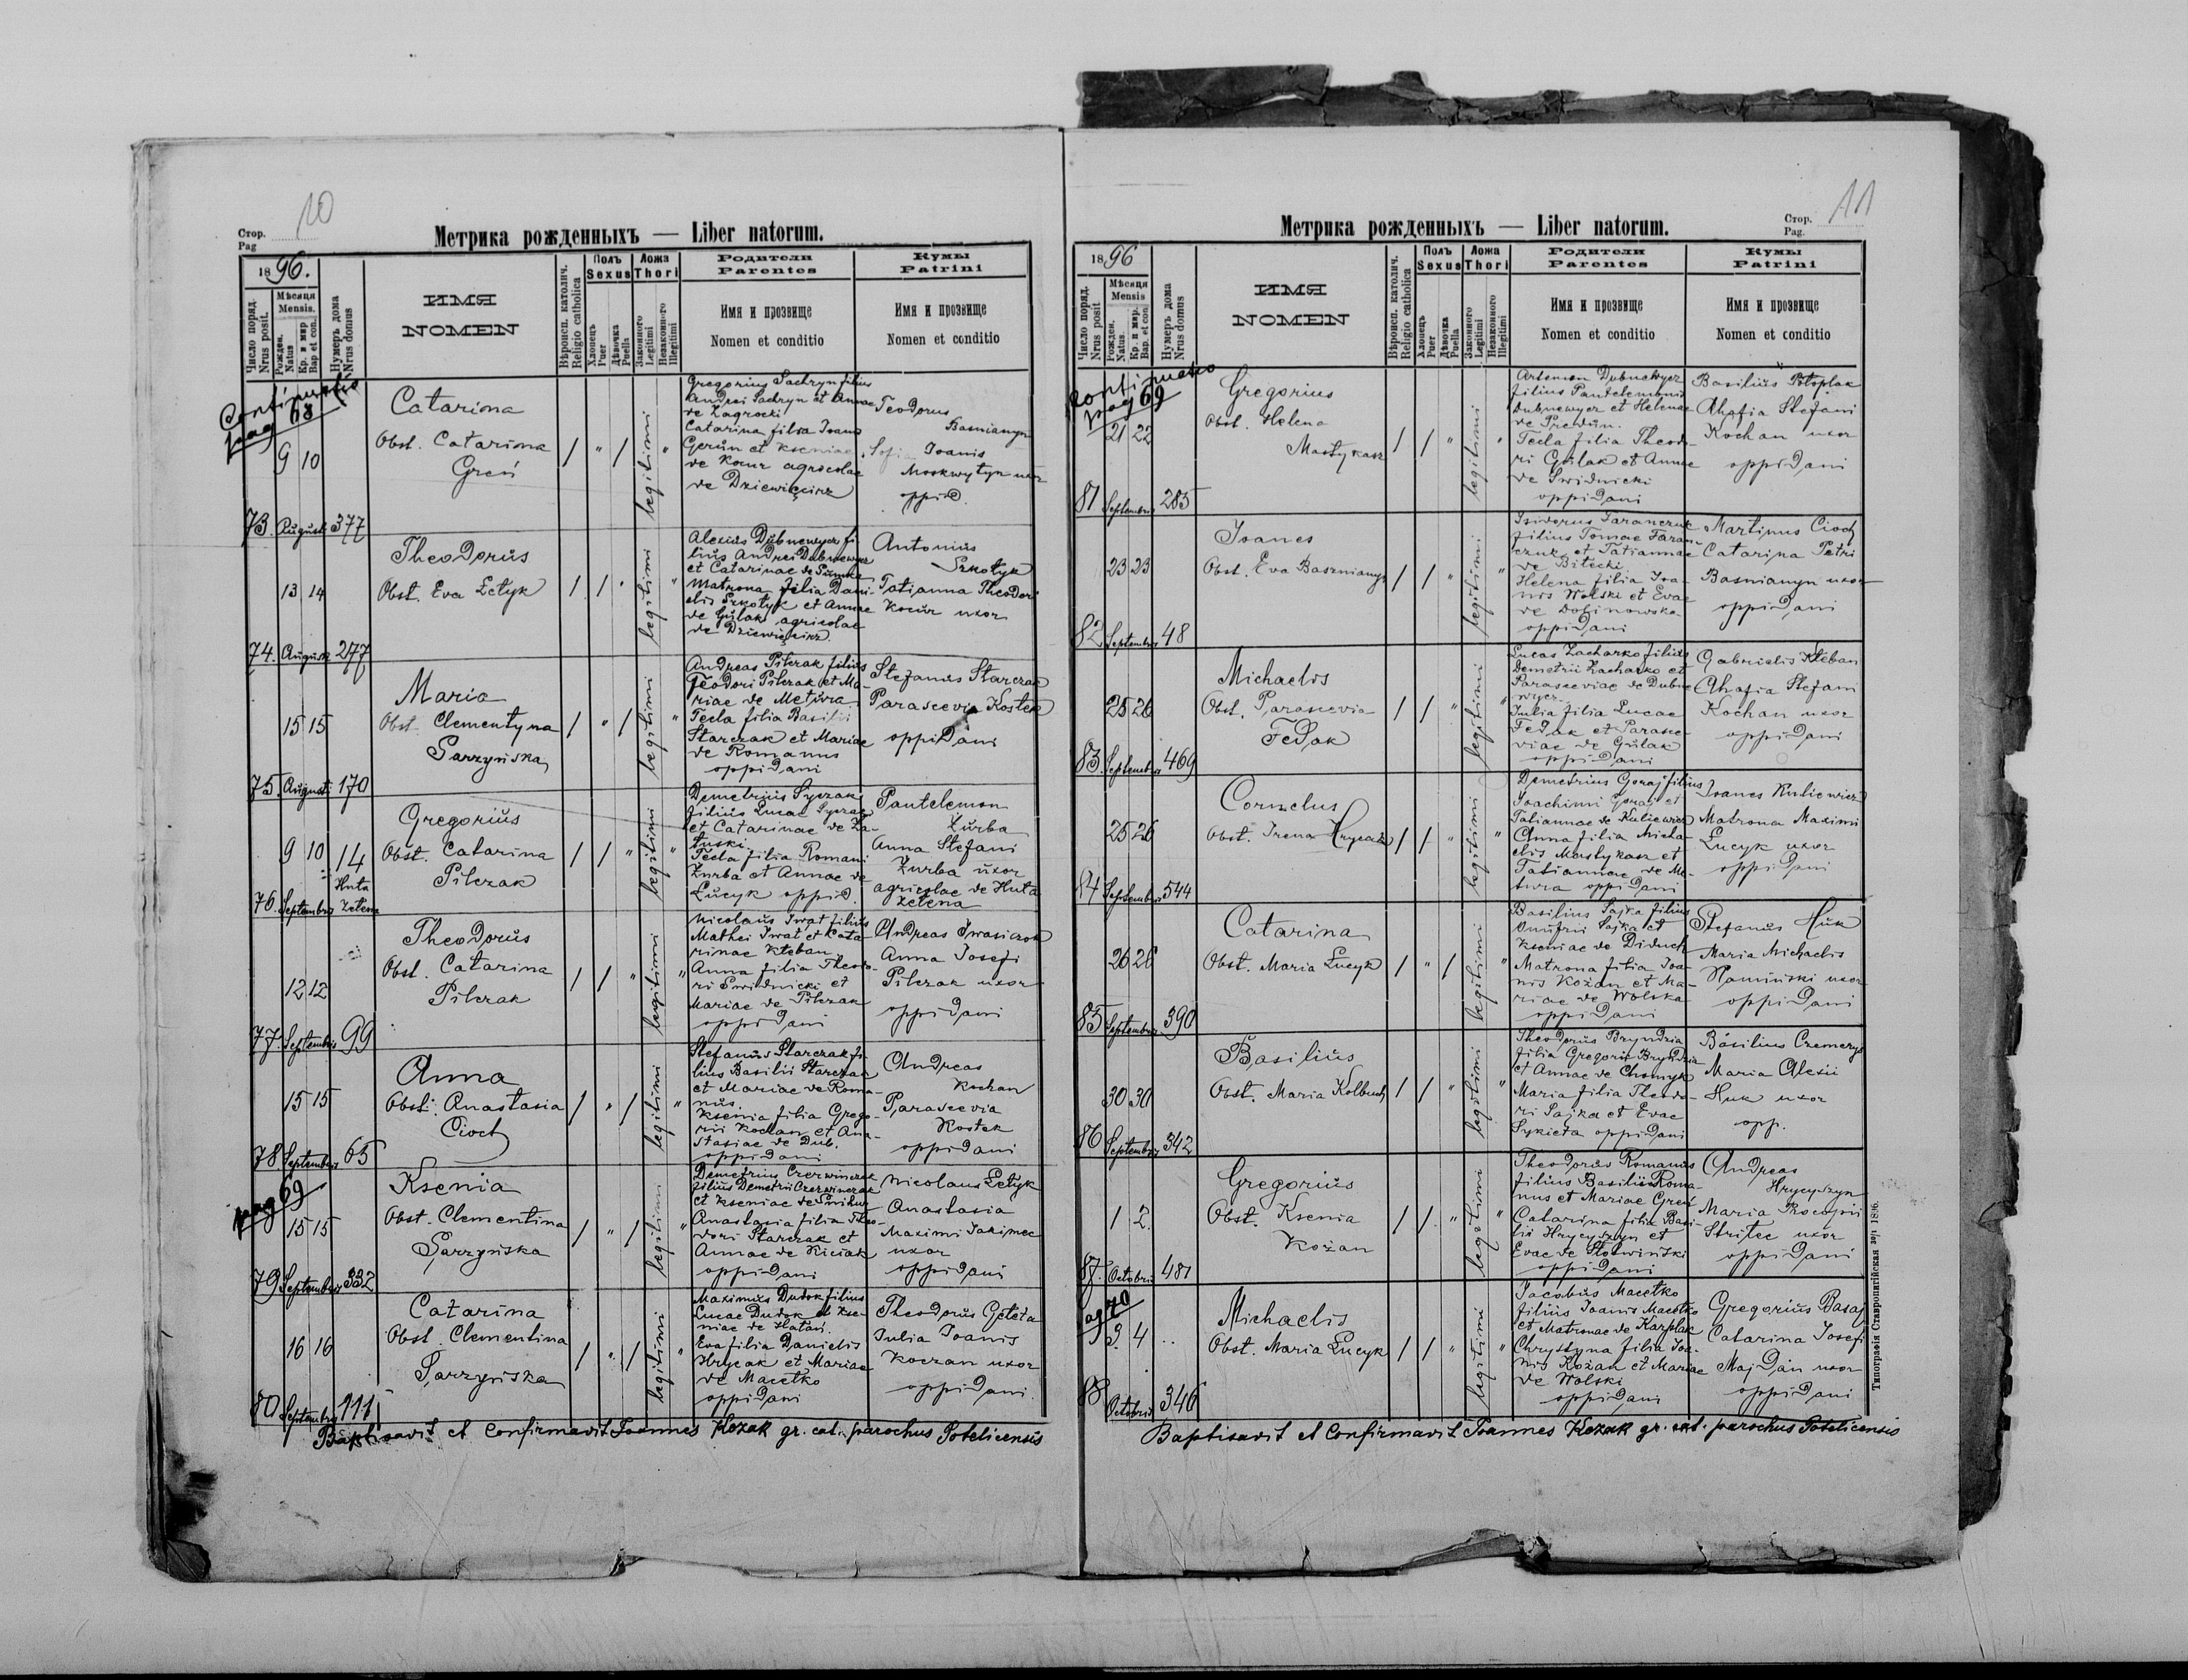 Стор.
Pag
10
Метрика рожденныхъ — Liber natorum.
1896.
Число поряд.
Nrus posit.
Мѣсяця
Mensis.
Рожден.
Natus
Кр. и мѵр
Bap et con.
Нумеръ дома
Nrus domus
ИМЯ
NOMEN
Вѣроисп. католич.
Religio catholica
Полъ
Sexus
Хлопець
Puer
Дѣвочка
Puella
Ложа
Thori
Законного
Legitimi
Незаконного
Illegitimi
Родители
Parentes
Имя и прозвище
Nomen et conditio
Кумы
Patrini
Имя и прозвище
Nomen et conditio
Continuatio
pag 68
9 10
73. Augusti 377
Catarina
Obst. Catarina
Greń
/ " / legitimi "
Gregorius Sachryn filius
Andrei Sachryn et Annae
de Zagrocki
Catarina filia Joanis
Gerun et Kseniae
de Kocur agricolae
de Dziewięcirz
Teodorus
Basnianyn
Sofia Joanis
Moskwytyn uxor
oppid.
13 14
74. Augusti 277
Theodorus
Obst. Eva Letyk
/ / " legitimi "
Alexius Dubnewycz fi-
lius Andrei Dubnewycz
et Catarinae de Sumka
Matrona filia Dani-
elis Szkotyk et Annae
de Gulak agricolae
de Dziewięcirz
Antonius
Szkotyk
Tatianna Theodori
Kocur uxor
15 15
75. Augusti 170
Maria
Obst. Clementyna
Sarzyńska
/ " / legitimi "
Andreas Pilczak filius
Teodori Pilczak et Ma-
riae de Metura
Tecla filia Basilii
Starczak et Mariae
de Romanus
oppidani
Stefanus Starczak
Parascevia Kostek
oppidani
9 10
14
Huta
Zelena
76. Septembris
Gregorius
Obst. Catarina
Pilczak
/ / " legitimi "
Demetrius Syczak
filius Lucae Syczak
et Catarinae de Za-
łuski.
Tecla filia Romani
Zurba et Annae de
Łucyk oppid.
Pantelemon
Zurba
Anna Stefani
Zurba uxor
agricolae de Huta
Zelena
12 12
77. Septembris 99
Theodorus
Obst. Catarina
Pilczak
/ / " legitimi "
Nicolaus Iwat filius
Mathei Iwat et Cata-
rinae Kleban
Anna filia Theodo-
ri Swidnicki et
Mariae de Pilczak
oppidani
Andreas Iwasieczok
Anna Josefi
Pilczak uxor
oppidani
15 15
78 Septembris 65
Anna
Obst. Anastasia
Cioch
/ " / legitimi "
Stefanus Starczak fi-
lius Basilii Starczak
et Mariae de Roma-
nus.
Ksenia filia Grego-
rii Kochan et Ana-
stasiae de Dub.
oppidani
Andreas
Kochan
Parascevia
Kostek
oppidani
pag 69
15 15
79 Septembris 332
Ksenia
Obst. Clementina
Sarzyńska
/ " / legitimi "
Demetrius Czerwinczak
filius Demetrii Czerwinczak
et Kseniae de Snihur
Anastasia filia Theo-
dori Starczak et
Annae de Kiciak
oppidani
Nicolaus Letyk
Anastasia
Maximi Jakimec
uxor
oppidani
16 16
80 Septembris 111
Catarina
Obst. Clementina
Sarzyńska
/ " / legitimi "
Maximus Dudok filius
Lucae Dudok et Kse-
niae de Hatan.
Eva filia Danielis
Hrycak et Mariae
de Macetko
oppidani
Theodorus Geleta
Julia Joanis
Koczan uxor
oppidani.
Baptisavit et Confirmavit Joannes Kozak gr. cat. parochus Potelicensis
Стор.
Pag.
11
Метрика рожденныхъ — Liber natorum.
1896
Число поряд.
Nrus posit
Мѣсяця
Mensis
Рожден.
Natus.
Кр. и мѵр.
Bap et con.
Нумеръ дома
Nrus domus
ИМЯ
NOMEN
Вѣроисп. католич.
Religio catholica
Полъ
Sexus
Хлопець
Puer
Дѣвочка
Puella
Ложа
Thori
Законного
Legitimi
Незаконного
Illegitimi
Родители
Parentes
Имя и прозвище
Nomen et conditio
Кумы
Patrini
Имя и прозвище
Nomen et conditio
pag 69
21 22
81 Septembris 285
Gregorius
Obst. Helena
Mastykasz
/ / " legitimi "
Artemon Dubnewycz
filius Pantelemonis
Dubnewycz et Helenae
de Predun.
Tecla filia Theodo-
ri Gulak et Annae
de Swidnicki
oppidani
Basilius Potoplak
Ahafia Stefani
Kochan uxor
oppidani
23 23
82 Septembris 48
Joanes
Obst. Eva Basznianyn
/ / " legitimi "
Isidorus Taranczuk
filius Tomae Taran-
czuk et Tatiannae
de Bitecki.
Helena filia Joa-
nis Wolski et Evae
de Dolinowska
oppidani
Martinus Cioch
Catarina Petri
Basnianyn uxor
oppidani
25 26
83 Septembris 469
Michaelis
Obst. Parascevia
Fedak
/ / " legitimi "
Lucas Zacharko filius
Demetrii Zacharko et
Parasceviae de Dubne-
wycz
Julia filia Lucae
Fedak et Parasce-
viae de Gulak
oppidani
Gabrielis Kleban
Ahafia Stefani
Kochan uxor
oppidani
25 26
84 Septembris 544
Cornelus
Obst. Irena Hrycak
/ / " legitimi "
Demetrius Goraj filius
Joachimi Goraj et
Tatiannae de Kuliewicz
Anna filia Micha-
elis Mastykasz et
Tatiannae de Me-
tura oppidani
Joanes Kuliewicz
Matrona Maximi
Łucyk uxor
oppidani
26 26
85 Septembris 390
Catarina
Obst. Maria Łucyk
/ " / legitimi "
Basilius Sajka filius
Onufrii Sajka et
Kseniae de Diduch
Matrona filia Joa-
nis Kożan et Ma-
riae de Wolska
oppidani
Stefanus Huk
Maria Michaelis
Kaminski uxor
oppidani
30 30
86 Septembris 342
Basilius
Obst. Maria Kolbuch
/ / " legitimi "
Theodorus Bryndzia
filia Gregorii Bryndzia
et Annae de Chomyk
Maria filia Theodo-
ri Sajka et Evae
Sykieta oppidani
Basilius Czemerys
Maria Alexii
Huk uxor
opp.
1 2.
87. Octobris 481
Gregorius
Obst. Ksenia
Kożan
/ / " legitimi "
Theodorus Romanus
filius Basilii Roma-
nus et Mariae Greń
Catarina filia Basi-
lii Hrycyszyn et
Evae de Słotwiński
oppidani
Andreas
Hrycyszyn
Maria Procopii
Stritec uxor
oppidani
pag 70
3. 4
88 Octobris 346
Michaelis
Obst. Maria Łucyk
/ / " legitimi "
Jacobus Macetko
filius Joanis Macetko
et Matronae de Karplak
Chrystyna filia Joa-
nis Kożan et Mariae
de Wolski
oppidani
Gregorius Basaj
Catarina Josefi
Majdan uxor
oppidani
Baptisavit et Confirmavit Joannes Kozak gr. cat. parochus Potelicensis
Типографія Ставропигійская 1896.